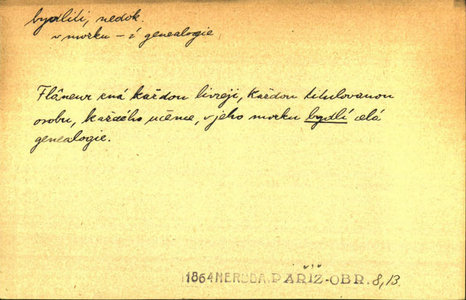 bydliti, nedok.
v mozku – i genealogie
Flâneur zná každou livreji, každou titulovanou
osobu, každého učence, v jeho mozku bydlí celá
genealogie.
1864 NERUDA, PAŘÍŽ-OBR. 8,13